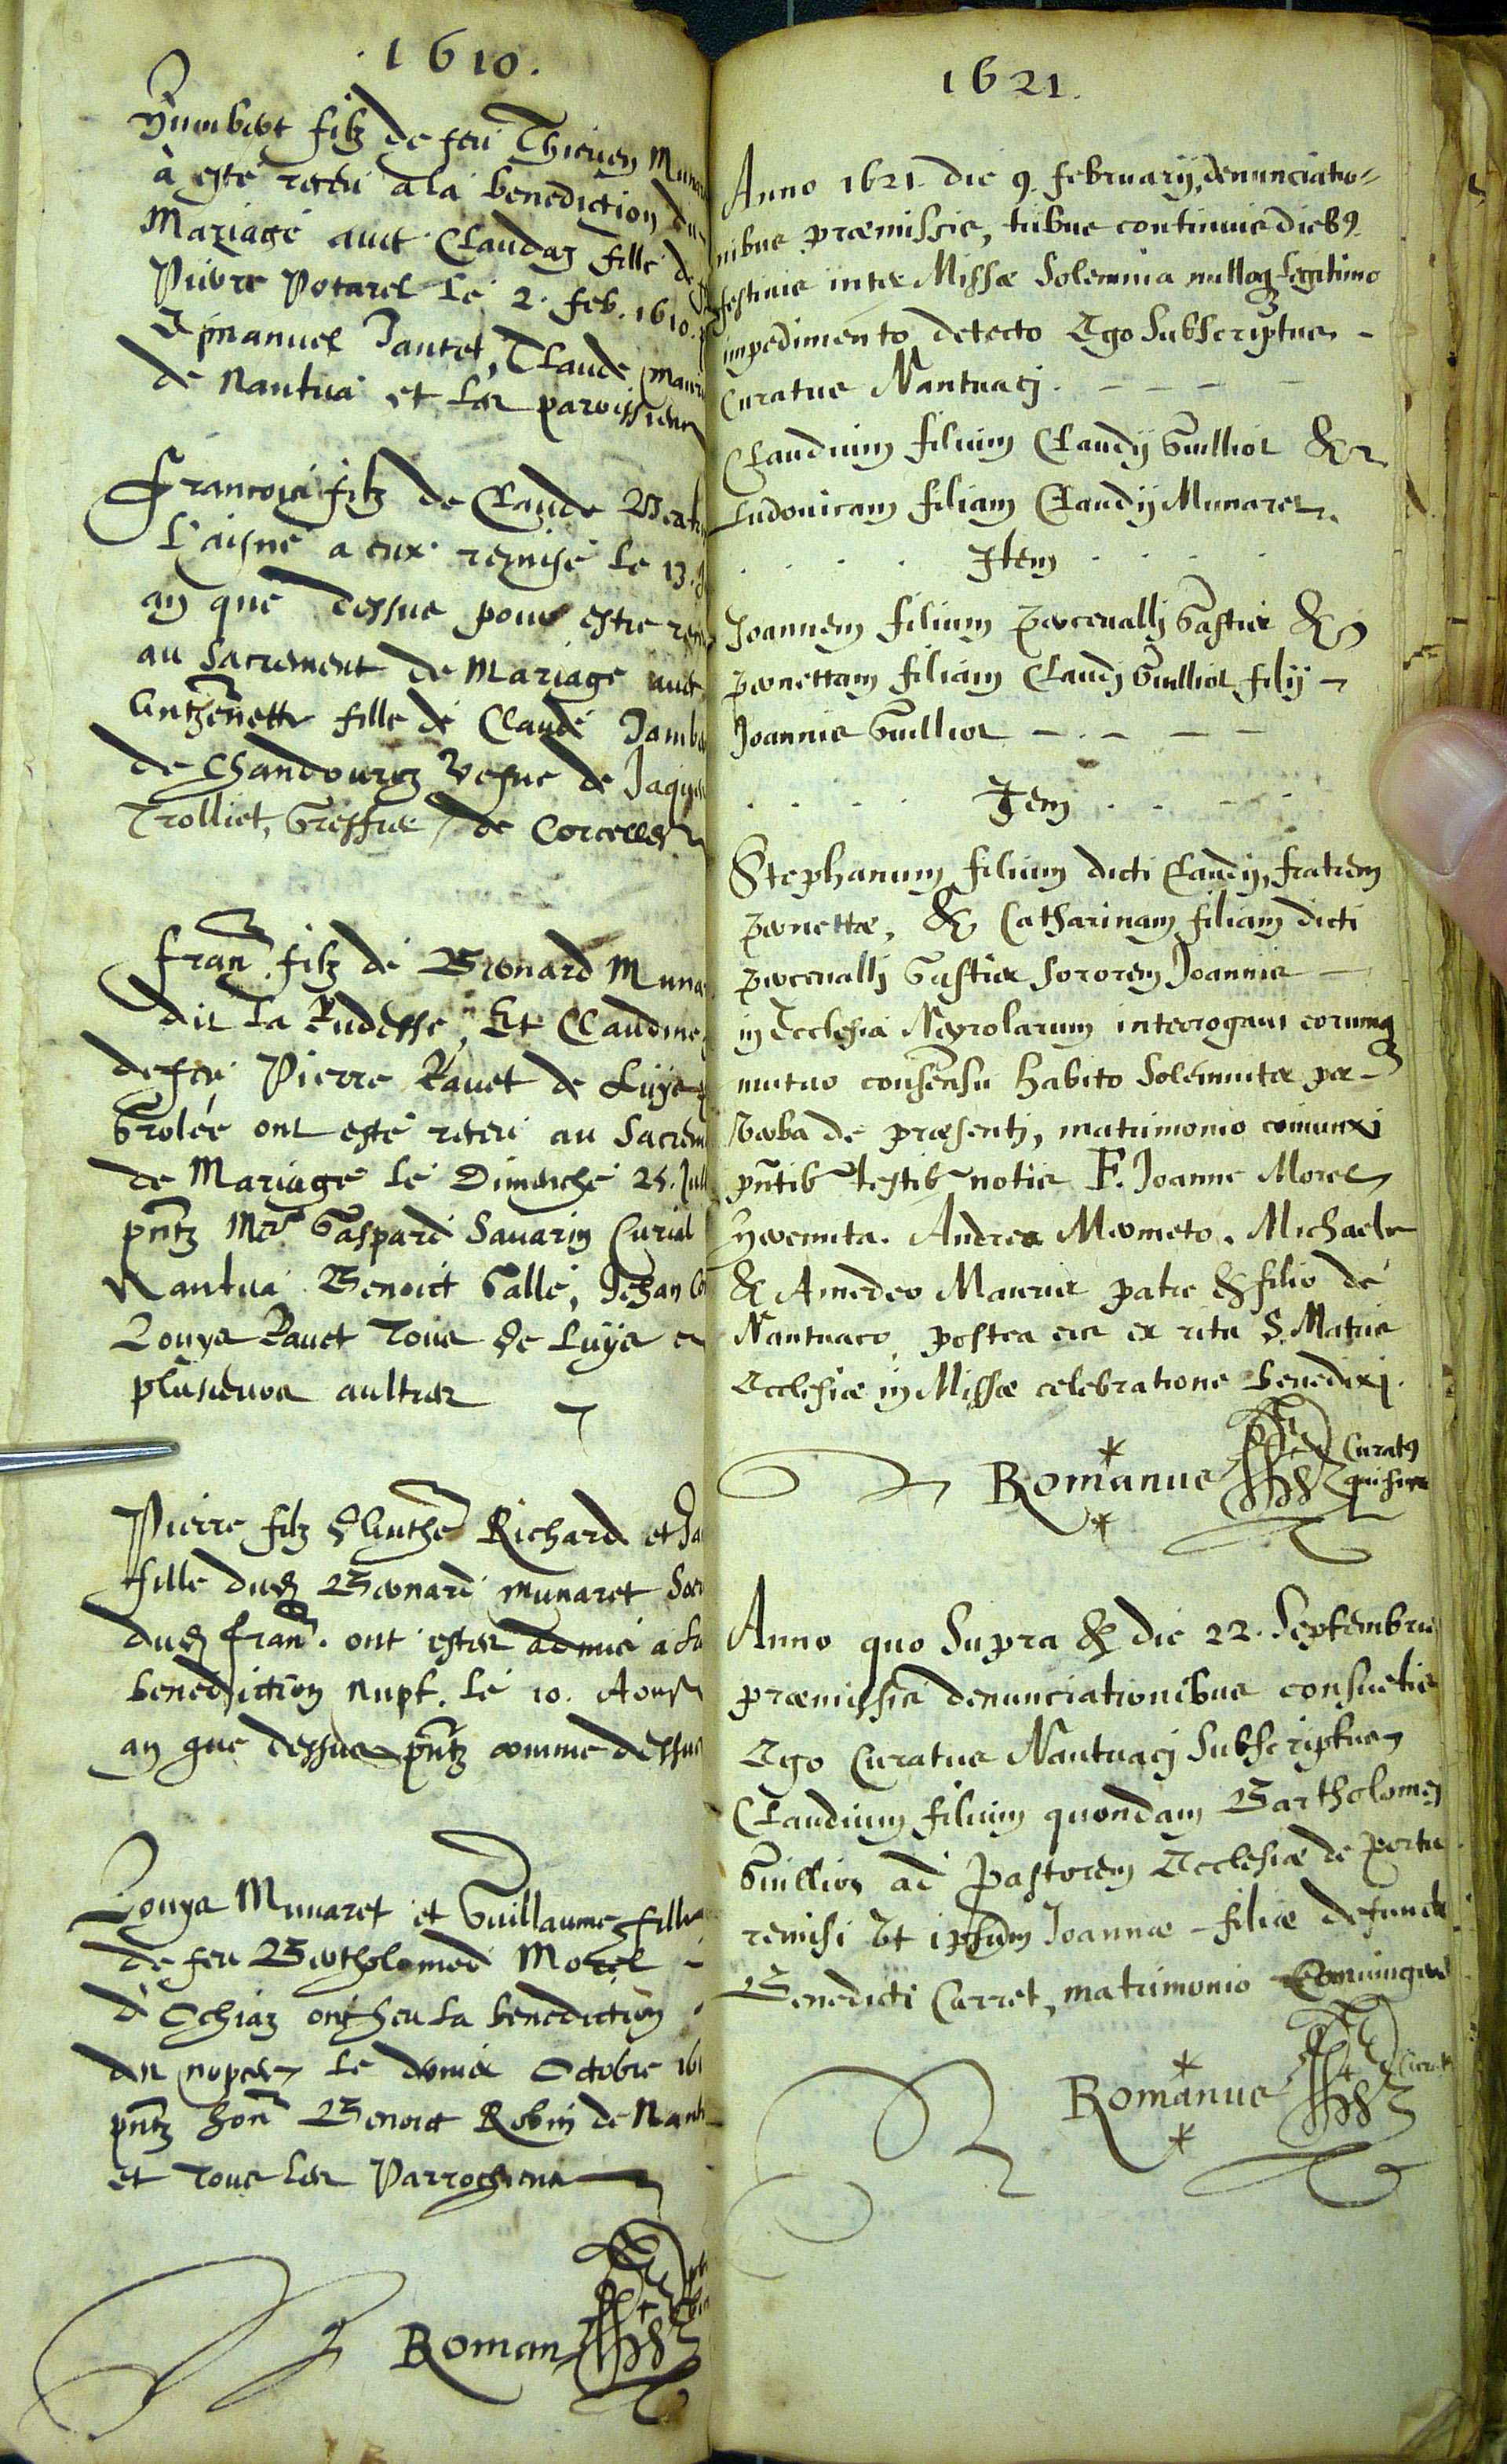 .1610.
Humbert filz de feu Thieven Muna
à esté receu a la benediction du
Mariage avec Claudaz fille de
Pierre Potarel le 2. feb. 1610.
Emanuel Jantet, Claude
de Nantua et les paroissiens
Francois filz de Claude
L'aisné a eux remise le 13.
an que dessus pour estre
au Sacrement de Mariage avec
Anthenette fille de Claude
de Chandourez vefue de Jaques
Trolliet, Greffier de Corcelles
Fran. filz de Bernard Muna
dit la Rudesse, Et Claudine
de feu Pierre Ravet de
Grolée ont esté receu au Sacrem
de Mariage le Dimenche 25. Jull
pntz Mre Gaspard Savarin Curial
Nantua Benoict Galle, Jehan
Louys Ravet tous de
plusieurs aultres
Pierre filz d'Anthe Richard et
fille dud Bernard Munaret
dud Fran. ont estes admis a la
benediction nupt. le 10. Aoust
an que dessus pntz comme dessus
Louys Munaret et Guillaume fille
de feu Bertholomed Morel
d'Ochiaz ont heu la benediction
des nopces le dernier Octobre 161
pntz hon Benoict Robin de Nant
et tous les Parrochiens
Roman
1621.
Anno 1621. die 9. februarij, denunciatio=
nibus præmissis, tribus continuis dieb9
festiuis inter Missæ Solemnia nulloq Legitimo
impedimento detecto Ego Subscriptus
Curatus Nantuaci
Claudium filium Claudij Guilliot &
Ludouicam filiam Claudij Munaret.
Item
Joannem filium Perceualli Gastier &
pernettam filiam Claudij Guilliot filij
Joannis Guilliot
Item
Stephanum filium dicti Claudij, fratrem
pernettæ, & Catharinam filiam dicti
perceualli Gastier sororem Joannis
in Ecclesia Neyrolarum interrogaui eorumq
mutuo consensu habito Solemniter per
verba de præsenti, matrimonio coniunxi
pntib testib notis F. Joanne Morel
heremita. Andrea Mermeto. Michaele
& Amedeo Maurier patre & filio de
Nantuaco, postea eis ex ritu S. Matris
Ecclesiæ in Missæ celebratione benedixi.
Romanus Curat9
Anno quo Supra & die 22. Septembris
præmissis denunciationibus consuetis
Ego Curatus Nantuaci Subscriptus
Claudium filium quondam Bartholomei
Guilliot ad Pastorem Ecclesiæ de Portu
remisi Vt ipsum Joannæ filiæ defuncti
Benedicti Carret, matrimonio Coniungeret
Romanus